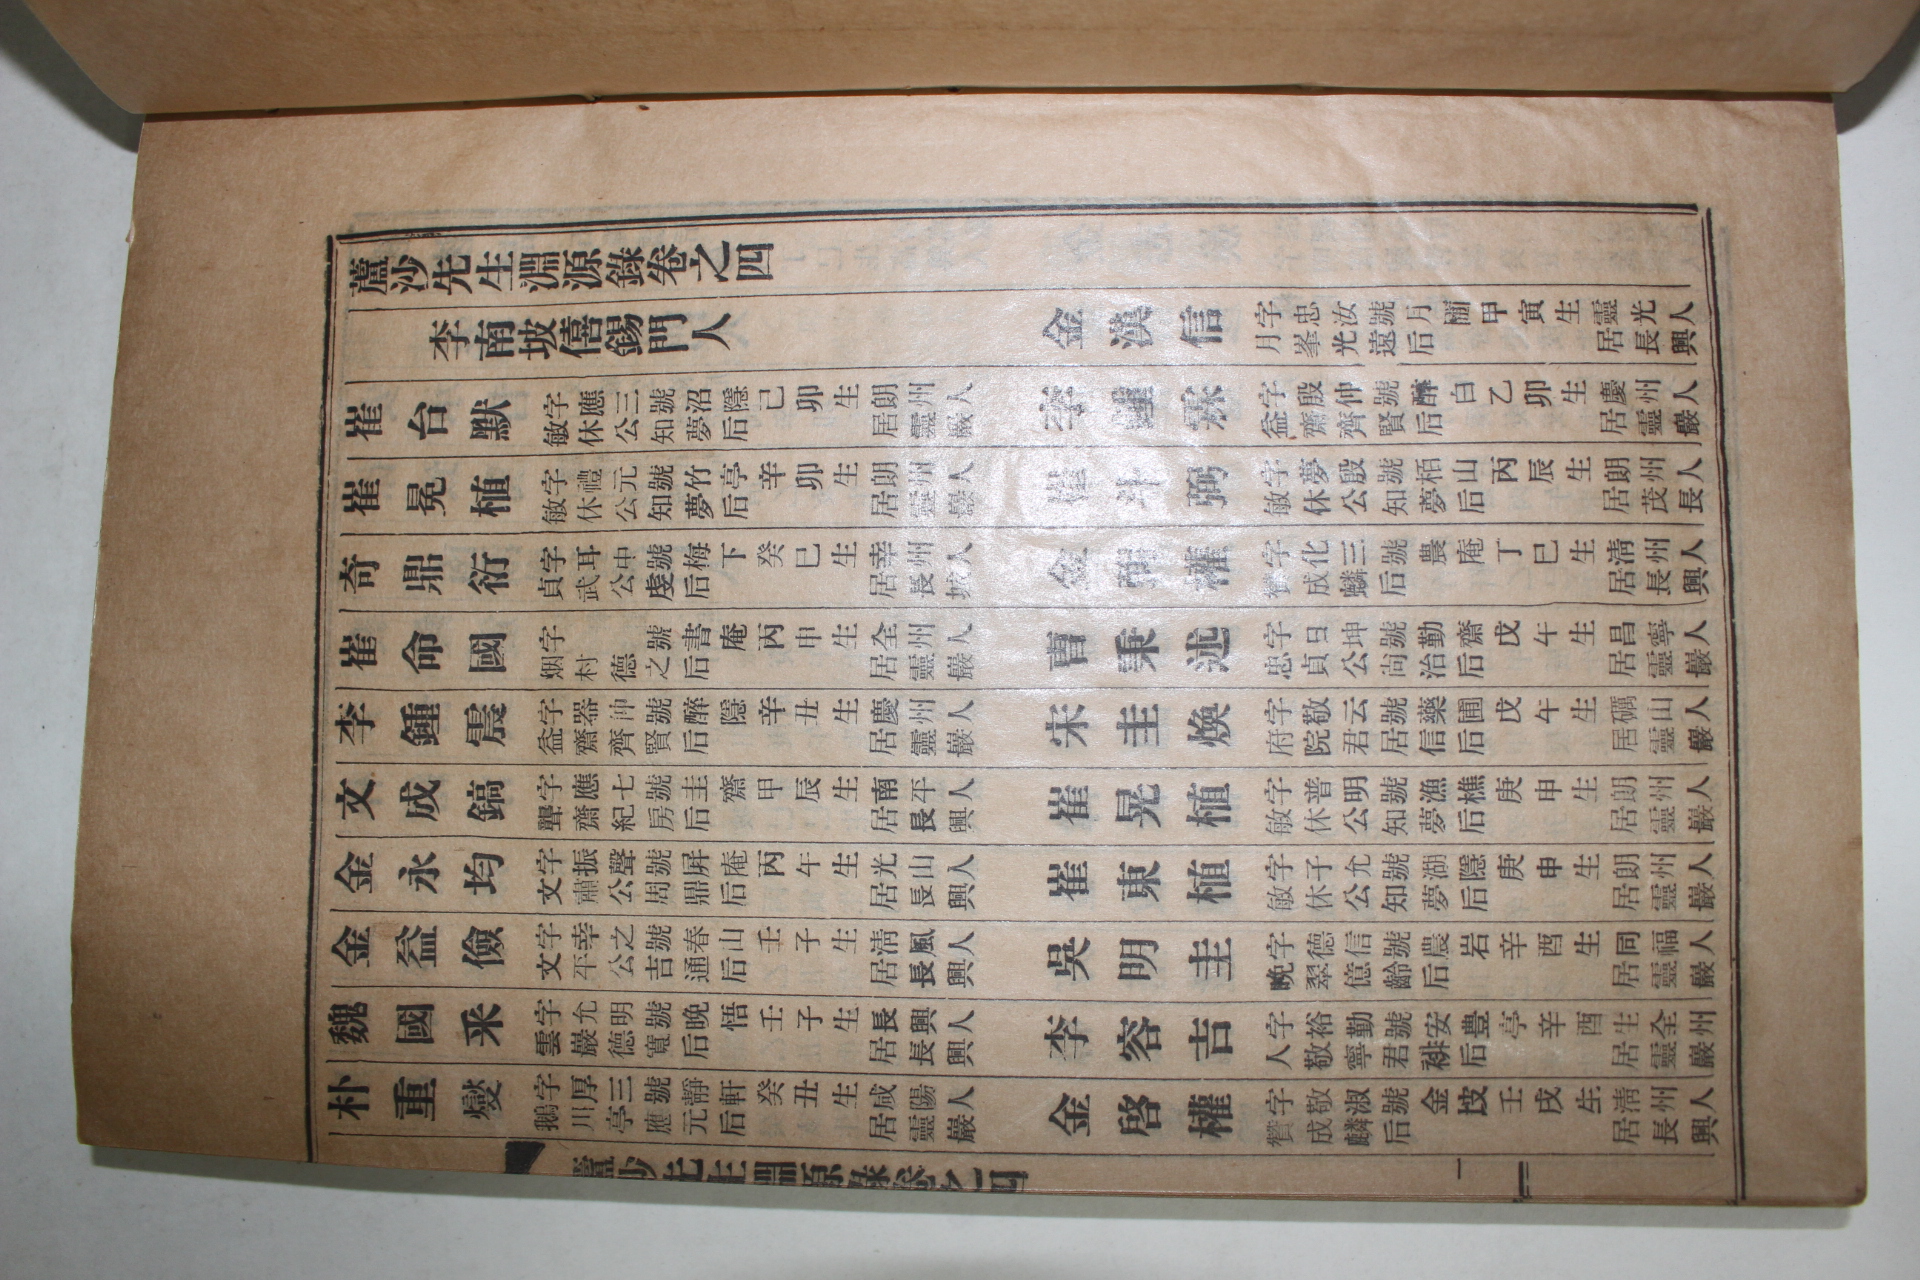 蘆沙先生淵源錄卷之四
李南坡僖錫門人
金漢信 字忠汝號月 甲寅生靈光人
月峯光遠后 居長興
崔台默 字應三號沼隱己卯生朗州人
敏休公知夢后 居靈巖
李鍾霖 字殷仲號醉白乙卯生慶州人
益齋齊賢后 居靈巖
崔冕植 字禮元號竹亭辛卯生朗州人
敏休公知夢后 居靈巖
崔斗弼 字夢殷號栢山丙辰生朗州人
敏休公知夢后 居茂長
奇鼎衍 字耳中號梅下癸巳生幸州人
貞武公虔后 居長城
金弼權 字化三號農庵丁巳生淸州人
贊成麟后 居長興
崔命國 字 號書庵丙申生全州人
烟村德之后 居靈巖
曺秉述 字日坤號勤齋戊午生昌寧人
忠貞公尙治后 居靈巖
李鍾震 字器仲號醉隱辛丑生慶州人
益齋齊賢后 居靈巖
宋圭煥 字敬云號藥圃戊午生礪山人
府院君居信后 居靈巖
文成鎬 字應七號圭齋甲辰生南平人
聾齋紀房后 居長興
崔晃植 字普明號漁樵庚申生朗州人
敏休公知夢后 居靈巖
金永均 字振聲號屛庵丙午生光山人
文肅公周鼎后 居長興
崔東植 字子允號湖隱庚申生朗州人
敏休公知夢后 居靈巖
金益儉 字幸之號春山壬子生淸風人
文平公吉通后 居長興
吳明圭 字德信號農岩辛酉生同福人
晩翠億齡后 居靈巖
魏國采 字允明號晩悟壬子生長興人
雲巖德寬后 居長興
李容吉 字裕勤號安豊亭辛酉生全州
人敬寧君裶后 居靈巖
朴重燮 字厚三號靜軒癸丑生咸陽人
鵝川亭應元后 居靈巖
金啓權 字敬淑號金坡壬戌生淸州人
贊成麟后 居長興
蘆沙先生淵源錄卷之四
一